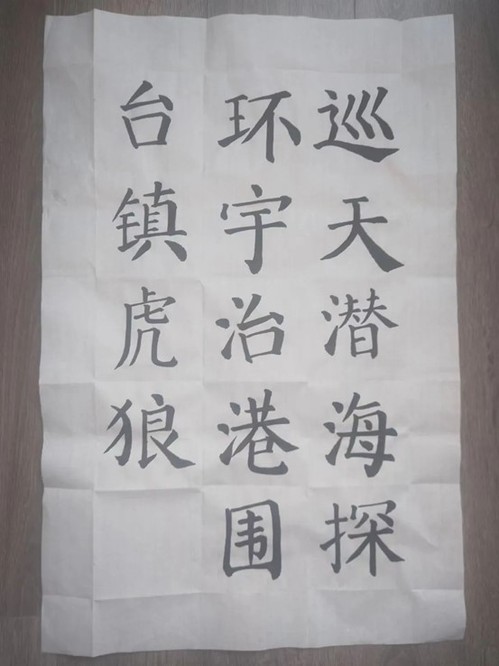 巡天潜海探
环宇治港围
台镇虎狼